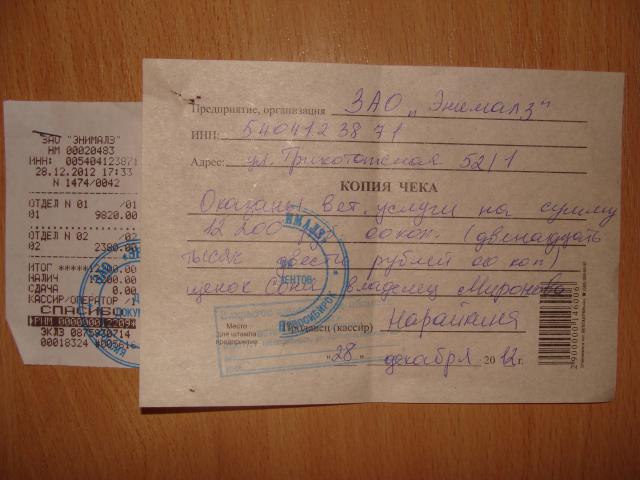 ЗАО "ЭНИМАЛЗ"
НМ 00020483
ИНН: 005404123871
28.12.2012 17:33
N 1474/0042
ОТДЕЛ N 01 /01
01 9820.00
ОТДЕЛ N 02 /02
02 2380.00
ИТОГ *****12200.00
НАЛИЧ 12200.00
СДАЧА 0.00
КАССИР/ОПЕРАТОР /
СПАСИБО
ЭКЛЗ 0875930714
00018324
Предприятие, организация ЗАО „Энималз"
ИНН: 5404123871
Адрес: ул. Трикотажная 52/1
КОПИЯ ЧЕКА
Оказаны вет. услуги на сумму
12 200 руб 00 коп. (двенадцать
тысяч двести рублей 00 коп)
щенок Соня владелец Миронова
Место
для штампа
предприятия
Продавец (кассир)
"28" декабря 2012г.
2900000146006